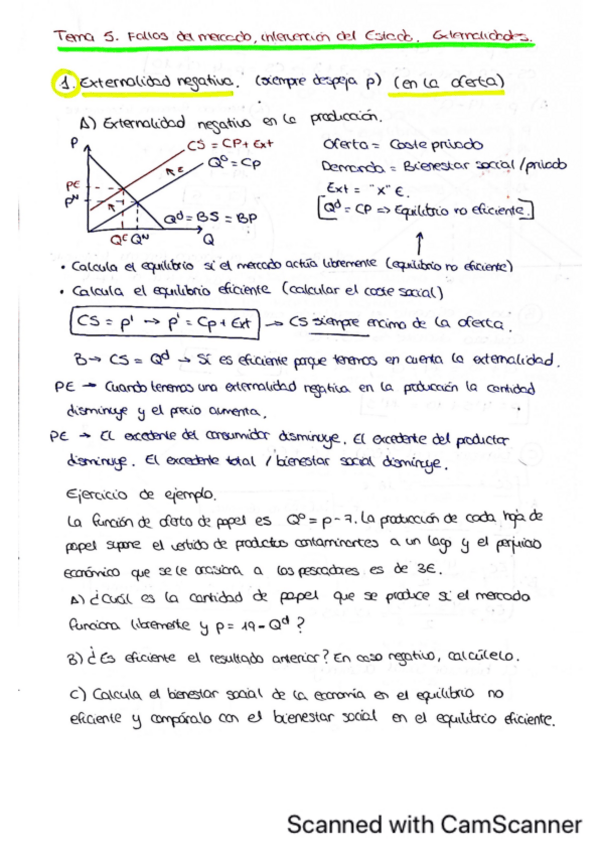 Tema 5. Fallos del mercado, intervención del Estado. Externalidades.
1. Externalidad negativa. (siempre despeja p) (en la oferta)
A) Externalidad negativa en la producción.
P
CS = CP + Ext
Oferta = Coste privado
Qº = Cp
Demanda = Bienestar social / privado
E
PE
Ext = "x" €.
Pᴺ
[Qᵈ = CP => Equilibrio no eficiente.]
Qᵈ = BS = BP
Qᴱ Qᴺ Q
• Calcula el equilibrio si el mercado actúa libremente (equilibrio no eficiente)
• Calcula el equilibrio eficiente (calcular el coste social)
CS = p' → p' = Cp + Ext → CS siempre encima de la oferta.
B → CS = Qᵈ → Sí es eficiente porque tenemos en cuenta la externalidad.
PE → Cuando tenemos una externalidad negativa en la producción la cantidad
disminuye y el precio aumenta.
PE → El excedente del consumidor disminuye. El excedente del productor
disminuye. El excedente total / bienestar social disminuye.
Ejercicio de ejemplo.
La función de oferta de papel es Qº = p - 7. La producción de cada hoja de
papel supone el vertido de productos contaminantes a un lago y el perjuicio
económico que se le ocasiona a los pescadores es de 3€.
A) ¿Cuál es la cantidad de papel que se produce si el mercado
funciona libremente y p = 19 - Qᵈ?
B) ¿Es eficiente el resultado anterior? En caso negativo, calcúlelo.
C) Calcula el bienestar social de la economía en el equilibrio no
eficiente y compáralo con el bienestar social en el equilibrio eficiente.
Scanned with CamScanner